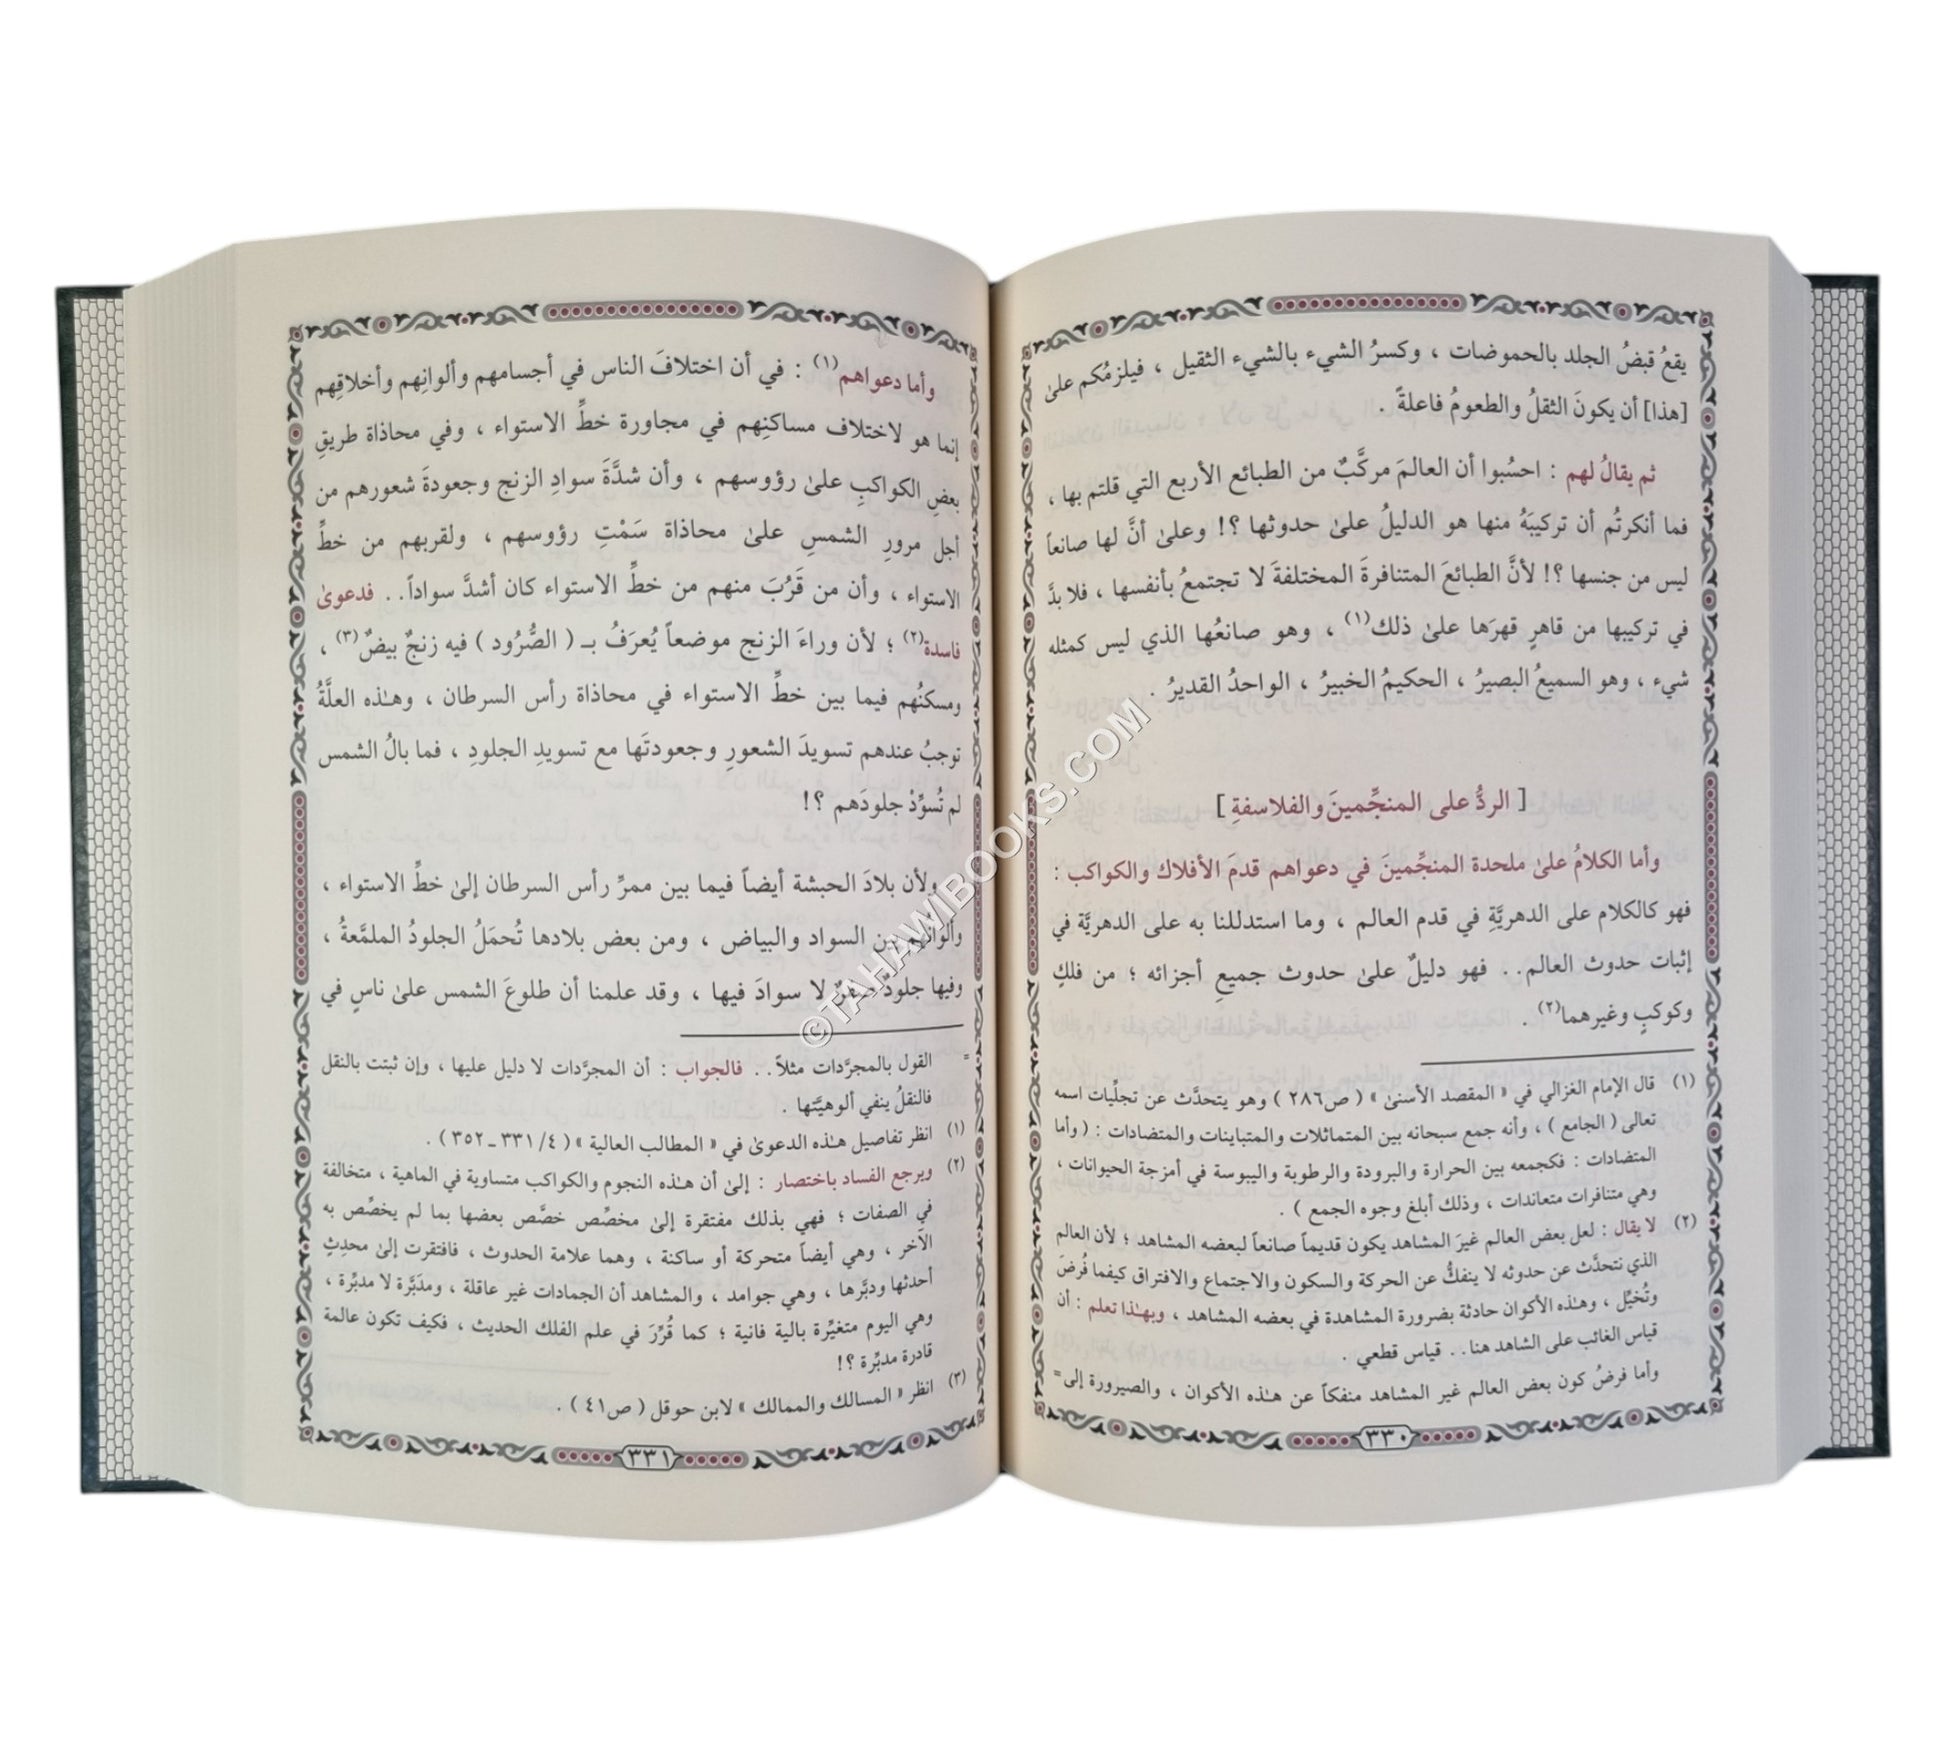 يقعُ قبضُ الجلد بالحموضات ، وكسرُ الشيء بالشيء الثقيل ، فيلزمُكم علىٰ
[هذا] أن يكونَ الثقلُ والطعومُ فاعلةً .
ثم يقالُ لهم : احسُبوا أن العالمَ مركَّبٌ من الطبائع الأربع التي قلتم بها ،
فما أنكرتُم أن تركيبَهُ منها هو الدليلُ علىٰ حدوثها ؟! وعلىٰ أنَّ لها صانعاً
ليس من جنسها ؟! لأنَّ الطبائعَ المتنافرةَ المختلفةَ لا تجتمعُ بأنفسها ، فلا بدَّ
في تركيبها من قاهرٍ قهرَها علىٰ ذلك(١) ، وهو صانعُها الذي ليس كمثله
شيء ، وهو السميعُ البصيرُ ، الحكيمُ الخبيرُ ، الواحدُ القديرُ .
[ الردُّ على المنجِّمينَ والفلاسفةِ ]
وأما الكلامُ علىٰ ملحدة المنجِّمينَ في دعواهم قدمَ الأفلاك والكواكب :
فهو كالكلام على الدهريَّةِ في قدم العالم ، وما استدللنا به على الدهريَّة في
إثبات حدوث العالم.. فهو دليلٌ علىٰ حدوث جميعِ أجزائه ؛ من فلكٍ
وكوكبٍ وغيرهما(٢) .
(١) قال الإمام الغزالي في « المقصد الأسنىٰ » ( ص٢٨٦ ) وهو يتحدَّث عن تجلِّيات اسمه
تعالى ( الجامع ) ، وأنه جمع سبحانه بين المتماثلات والمتباينات والمتضادات : ( وأما
المتضادات : فكجمعه بين الحرارة والبرودة والرطوبة واليبوسة في أمزجة الحيوانات ،
وهي متنافرات متعاندات ، وذلك أبلغ وجوه الجمع ) .
(٢) لا يقال : لعل بعض العالم غيرَ المشاهد يكون قديماً صانعاً لبعضه المشاهد ؛ لأن العالم
الذي نتحدَّث عن حدوثه لا ينفكُّ عن الحركة والسكون والاجتماع والافتراق كيفما فُرضَ
وتُخيِّل ، وهـٰذه الأكوان حادثة بضرورة المشاهدة في بعضه المشاهد ، وبهـٰذا تعلم : أن
قياس الغائب على الشاهد هنا.. قياس قطعي .
وأما فرضُ كون بعض العالم غير المشاهد منفكاً عن هـٰذه الأكوان ، والصيرورة إلى =
٣٣٠
وأما دعواهم(١) : في أن اختلافَ الناس في أجسامهم وألوانِهم وأخلاقِهم
إنما هو لاختلاف مساكنِهم في مجاورة خطِّ الاستواء ، وفي محاذاة طريقِ
بعضِ الكواكبِ علىٰ رؤوسهم ، وأن شدَّةَ سوادِ الزنج وجعودةَ شعورهم من
أجل مرورِ الشمسِ علىٰ محاذاة سَمْتِ رؤوسهم ، ولقربهم من خطِّ
الاستواء ، وأن من قَرُبَ منهم من خطِّ الاستواء كان أشدَّ سواداً.. فدعوىٰ
فاسدة(٢) ؛ لأن وراءَ الزنج موضعاً يُعرَفُ بـ ( الصُّرُود ) فيه زنجٌ بيضٌ(٣) ،
ومسكنُهم فيما بين خطِّ الاستواء في محاذاة رأس السرطان ، وهـٰذه العلَّةُ
توجبُ عندهم تسويدَ الشعورِ وجعودتَها مع تسويدِ الجلودِ ، فما بالُ الشمس
لم تُسوِّدْ جلودَهم ؟!
ولأن بلادَ الحبشة أيضاً فيما بين ممرِّ رأس السرطان إلىٰ خطِّ الاستواء ،
وألوانُهم بين السواد والبياض ، ومن بعض بلادها تُحمَلُ الجلودُ الملمَّعةُ ،
وفيها جلودٌ لا سوادَ فيها ، وقد علمنا أن طلوعَ الشمس علىٰ ناسٍ في
= القول بالمجرَّدات مثلاً.. فالجواب : أن المجرَّدات لا دليل عليها ، وإن ثبتت بالنقل
فالنقلُ ينفي ألوهيَّتها .
(١) انظر تفاصيل هـٰذه الدعوىٰ في « المطالب العالية » ( ٤/ ٣٣١ ـ ٣٥٢ ) .
(٢) ويرجع الفساد باختصار : إلىٰ أن هـٰذه النجوم والكواكب متساوية في الماهية ، متخالفة
في الصفات ؛ فهي بذلك مفتقرة إلىٰ مخصِّص خصَّص بعضها بما لم يخصِّص به
الآخر ، وهي أيضاً متحركة أو ساكنة ، وهما علامة الحدوث ، فافتقرت إلىٰ محدِثٍ
أحدثها ودبَّرها ، وهي جوامد ، والمشاهد أن الجمادات غير عاقلة ، ومدَبَّرة لا مدبِّرة ،
وهي اليوم متغيِّرة بالية فانية ؛ كما قُرِّرَ في علم الفلك الحديث ، فكيف تكون عالمة
قادرة مدبِّرة ؟!
(٣) انظر « المسالك والممالك » لابن حوقل ( ص٤١ ) .
٣٣١
©TAHAWIBOOKS.COM